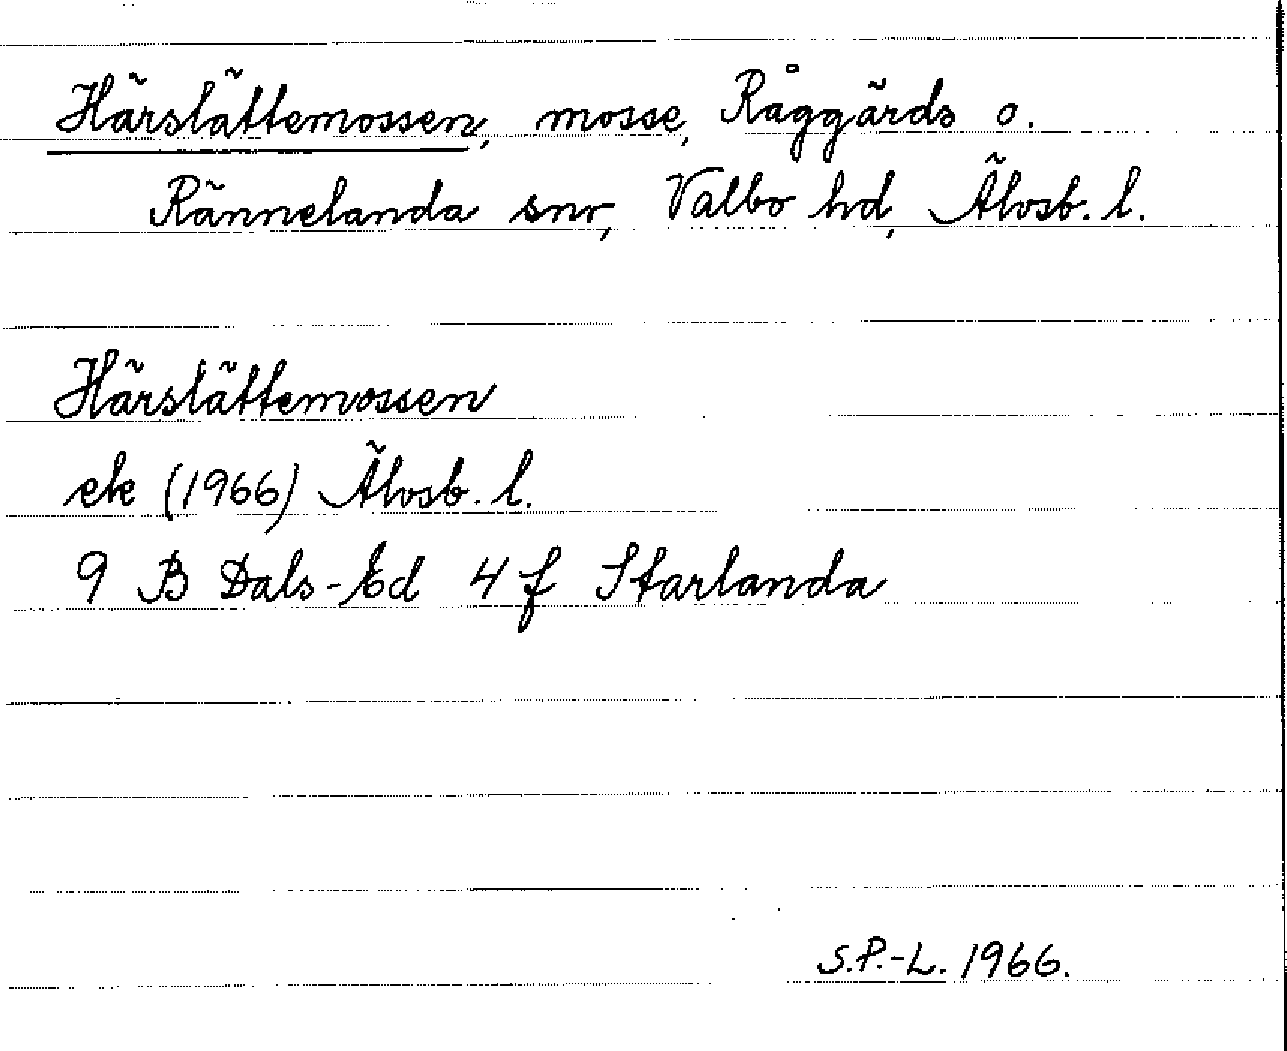 Härslättemossen, mosse, Råggärds o.
Rännelanda snr, Valbo hd, Älvsb. l.
Härslättemossen
ek (1966) Älvsb. l.
9 B Dals-Ed 4 f Starlanda
S.P.-L. 1966.